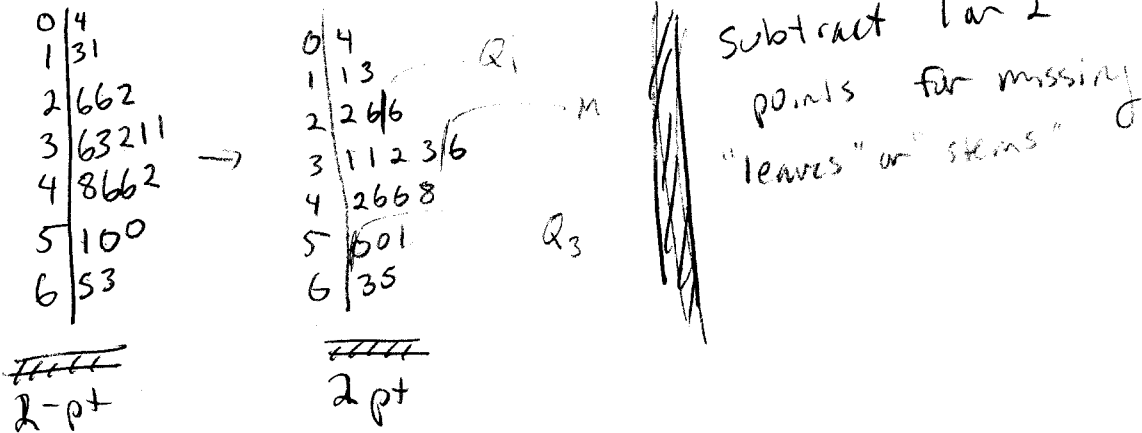 0 | 4
1 | 31
2 | 662
3 | 63211
4 | 8662
5 | 100
6 | 53
2-pt
→
0 | 4
1 | 1 3
2 | 2 6 6
3 | 1 1 2 3 6
4 | 2 6 6 8
5 | 0 0 1
6 | 3 5
Q1
M
Q3
2 pt
Subtract 1 or 2
points for missing
"leaves" or "stems"